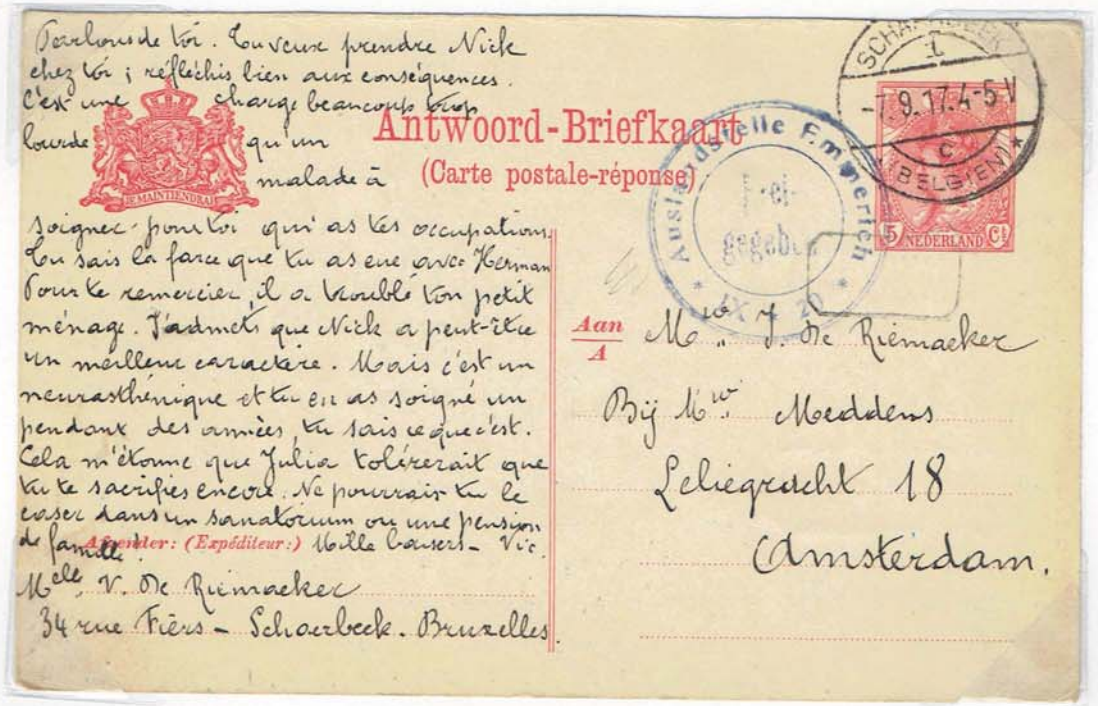 Parlons de toi. Tu veux prendre Nick
chez toi ; réfléchis bien aux conséquences.
C'est une charge beaucoup trop
lourde qu'un
malade à
soigner pour toi qui as tes occupations.
Tu sais la farce que tu as eue avec Herman
Pour te remercier, il a troublé ton petit
ménage. J'admets que Nick a peut-être
un meilleur caractère. Mais c'est un
neurasthénique et tu en as soigné un
pendant des années, tu sais ce que c'est.
Cela m'étonne que Julia tolérerait que
tu te sacrifies encore. Ne pourrais-tu le
caser dans un sanatorium ou une pension
de famille!
Afzender: (Expéditeur:) Mille baisers - Vic.
Melle V. De Riemaeker
34 rue Fiers - Schaerbeek. Bruxelles.
JE MAINTIENDRAI
Antwoord-Briefkaart
(Carte postale-réponse)
Auslandstelle Emmerich
Frei-
gegeben
SCHAERBEEK
1
-7.9.17.4-5 V
C
(BELGIEN)
5 NEDERLAND Ct
Aan
A
Mw. J. De Riemaeker
Bij Mw. Meddens
Leliegracht 18
Amsterdam.